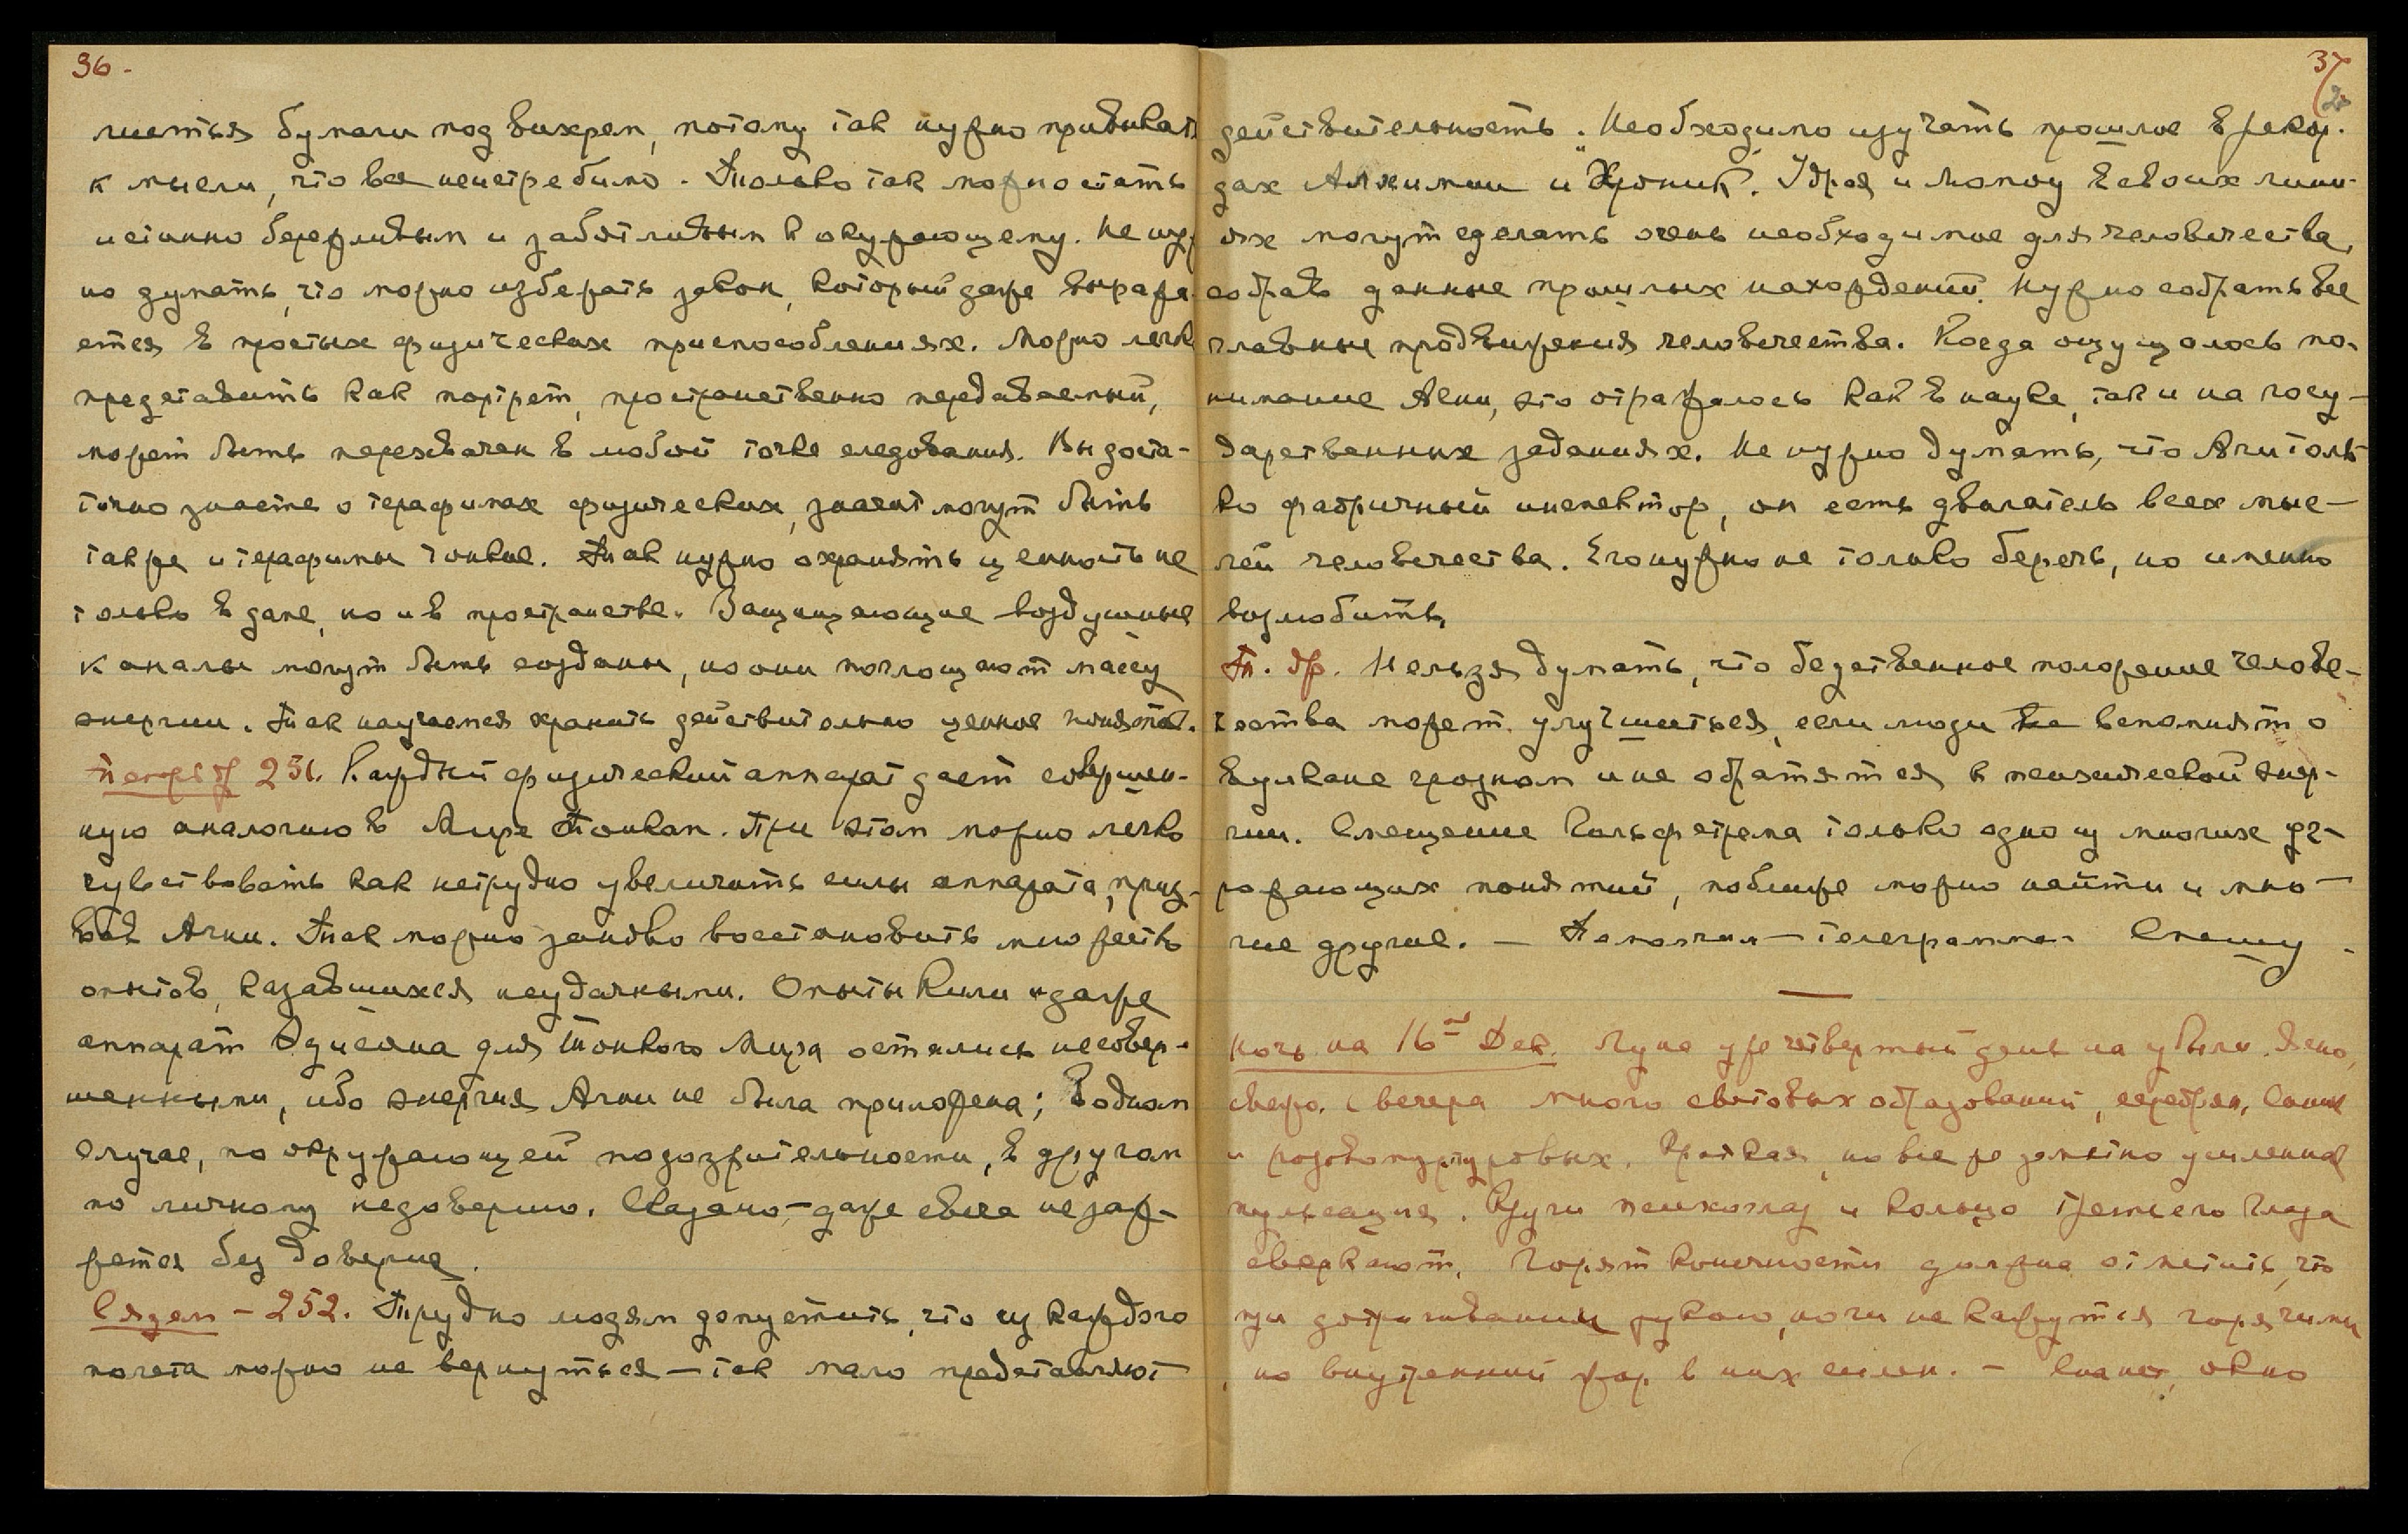 36 -
листья бумаги под вихрем, потому так нужно привыкать
к мысли, что все неистребимо. Только так можно стать
истинно бережливым и заботливым к окружающему. Не нуж
но думать, что можно избежать закон, который даже выража-
ется в простых физических приспособлениях. Можно легк
представить как портрет, пространственно передаваемый,
может быть перехвачен в любой точке следования. Вы доста-
точно знаете о терафимах физических, значит могут быть
также и терафимы тонкие. Так нужно охранять ценность не
только в доме, но и в пространстве. Защищающие воздушные
каналы могут быть созданы, но они поглощают массу
энергии. Так научаемся хранить действительно ценное понятие.
251. Каждый физический аппарат дает совершен-
ную аналогию в Мире Тонком. При этом можно легко
чувствовать как нетрудно увеличить силы аппарата, приз-
вав Агни. Так можно заново восстановить множество
опытов, казавшихся неудачными. Опыты Кили и даже
аппарат Эдисона для Тонкого Мира остались несовер-
шенными, ибо энергия Агни не была приложена; в одном
случае, по окружающей подозрительности, в другом
по личному недоверию. Сказано, – даже свеча не заж-
жется без доверия.
– 252. Трудно людям допустить, что из каждого
полета можно не вернуться – так мало представляют
37
действительность. „Необходимо изучать прошлое в рекор-
дах Алхимии и Хроник". Удрая и Мопоу в своих лини-
ях могут сделать очень необходимое для человечества,
собрав данные прошлых нахождений. Нужно собрать все
главные продвижения человечества. Когда ощущалось по-
нимание Агни, это отражалось как в науке, так и на госу-
дарственных заданиях. Не нужно думать, что Агни толь-
ко фабричный инспектор, он есть двигатель всех мыс-
лей человечества. Его нужно не только беречь, но именно
возлюбить.
Нельзя думать, что бедственное положение челове-
чества может улучшиться, если люди не вспомнят о
вулкане грозном и не обратятся к психической энер-
гии. Смещение Гольфстрема только одно из многих уг-
рожающих понятий, поближе можно найти и мно-
гие другие. – – телеграмма. Спешу -
Ночь на 16ое Дек. Луна уже четвертый день на убыли. Ясно,
свежо. С вечера много световых образований, серебрян, синих
и розовопурпуровых. Краткая, но все же заметно усиленная
пульсация. Круги и кольцо третьего глаза
сверкают. Горят конечности должна отметить, что
при дотрагивании рукою, ноги не кажутся горячими
, но внутренний жар в них силен. – окно